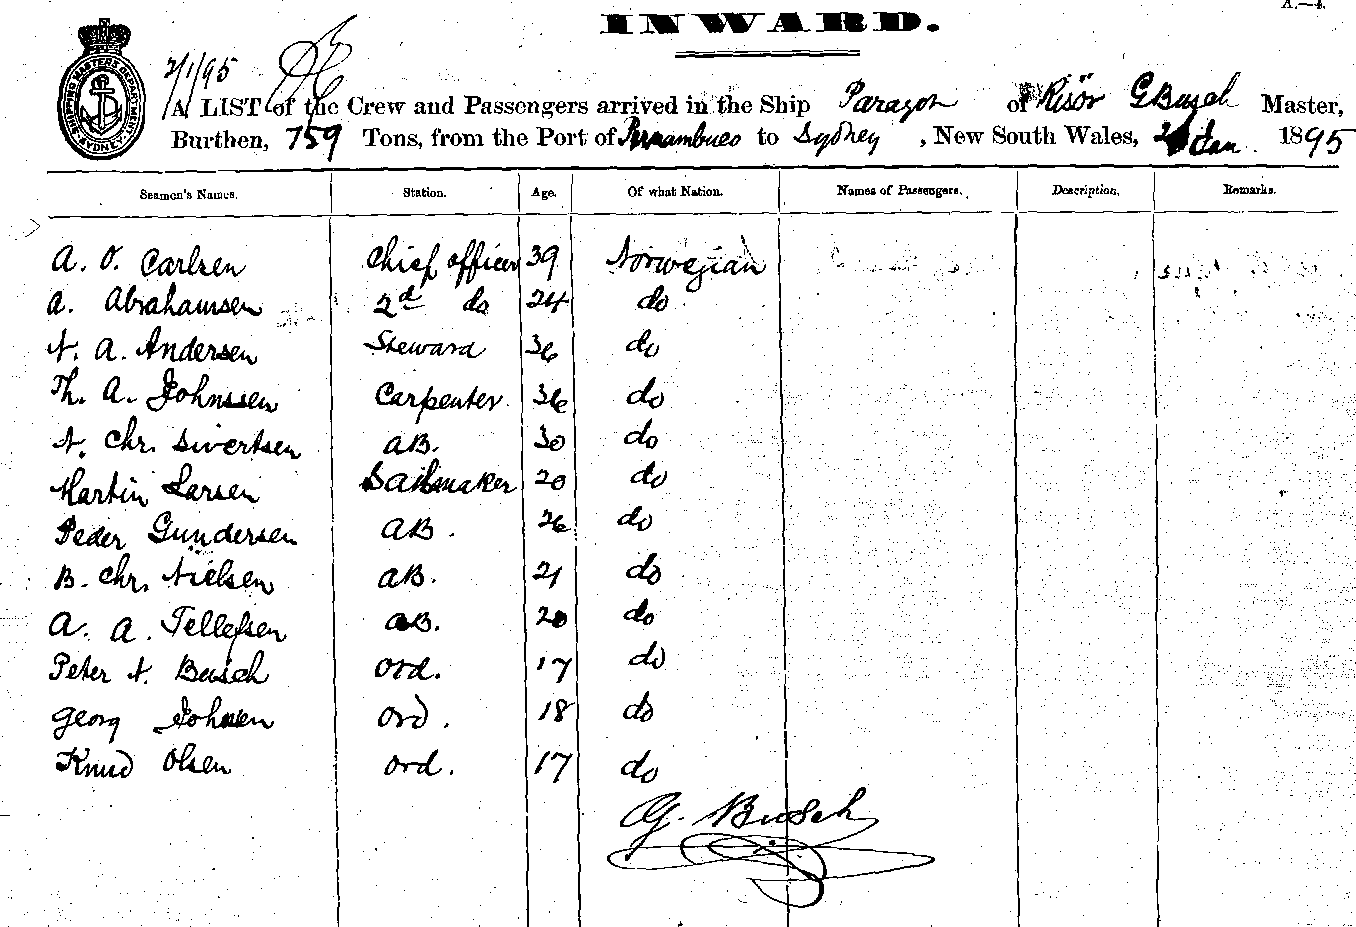 A.—4.
INWARD.
SHIPPING MASTERS DEPARTMENT SYDNEY
2/1/95
A LIST of the Crew and Passengers arrived in the Ship Paragon of Risör G Busch Master,
Burthen, 759 Tons, from the Port of Pernambuco to Sydney, New South Wales, 2 Jan. 1895
Seamen's Names. Station. Age. Of what Nation. Names of Passengers. Description. Remarks.
A. O. Carlsen Chief officer 39 Norwegian
A. Abrahamsen 2nd do 24 do
N. A. Andersen Steward 36 do
Th. A. Johnssen Carpenter. 36 do
N. Chr. Sivertsen AB. 30 do
Martin Larsen Sailmaker 20 do
Peder Gundersen AB. 26 do
B. Chr. Nielsen AB. 21 do
A. A. Tellefsen AB. 20 do
Peter N. Busch Ord. 17 do
Georg Johnsen Ord. 18 do
Knud Olsen Ord. 17 do
G. Busch